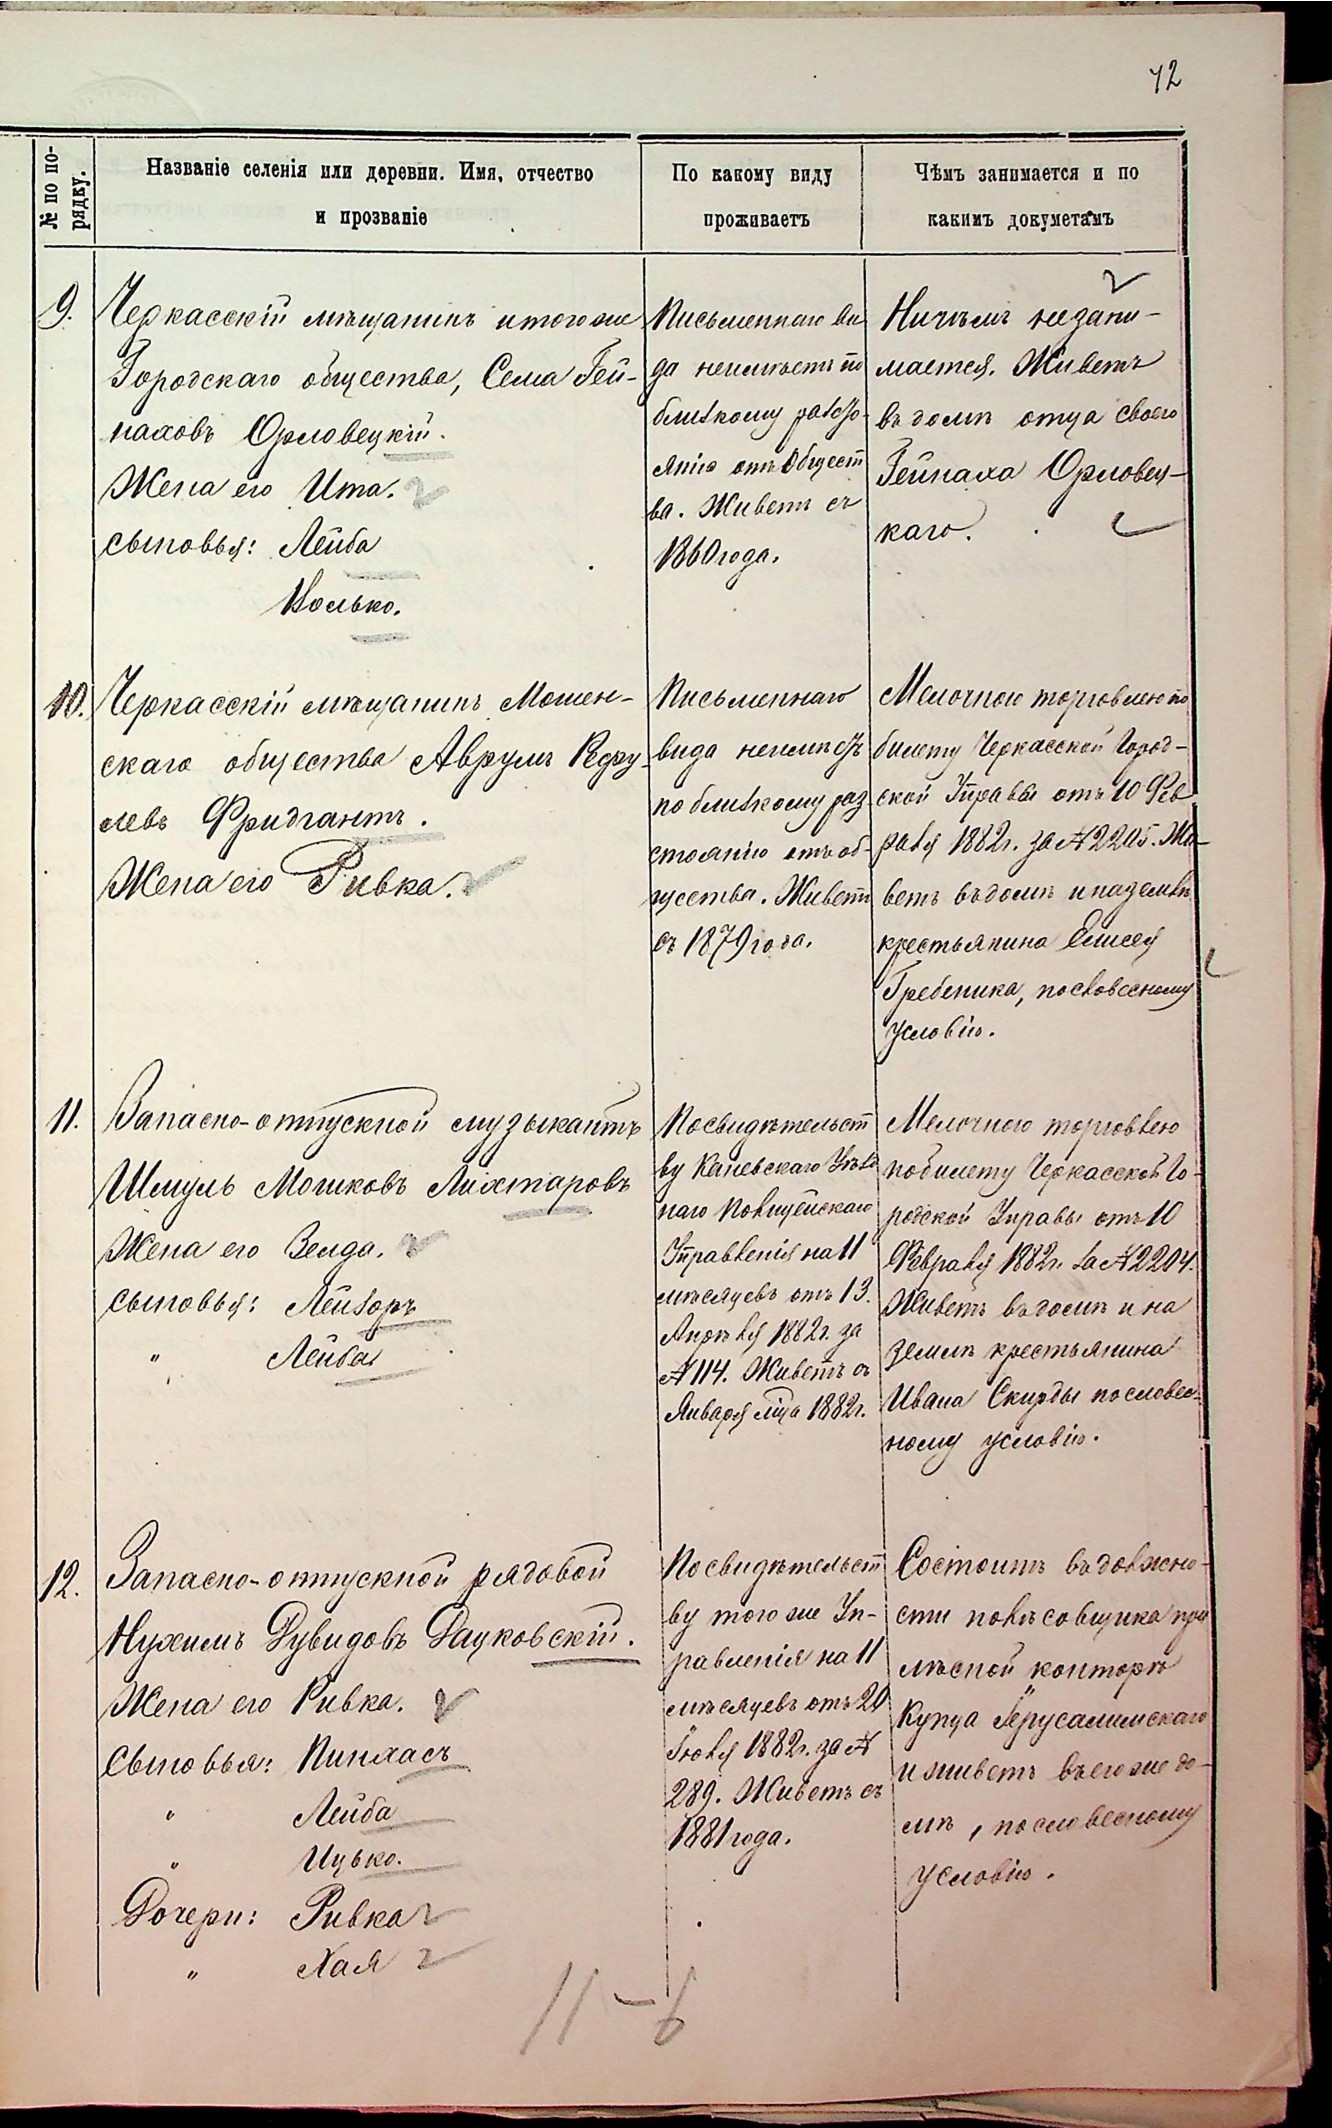 42
№ по по-
рядку.
Названіе селенія или деревни. Имя, отчество
и прозваніе
По какому виду
проживаетъ
Чѣмъ занимается и по
какимъ докуметамъ
9.
Черкасскій мѣщанинъ итогоже
Городскаго общества, Сема Гей-
наховъ Орловецкій.
Жена его Ита.
сыновья: Лейба
Волько.
Письменнаго ви
да неимѣетъ по
близкому разсто-
янію отъ Общест
ва. Живетъ съ
1860 года.
Ничѣмъ незани-
мается. Живетъ
въ домѣ отца своего
Гейнаха Орловец-
каго.
10.
Черкасскій мѣщанинъ Мошен-
скаго общества Аврумъ
левъ Фридгантъ.
Жена его Ривка.
Письменнаго
вида неимѣетъ
по близкому раз
стоянію отъ об-
щества. Живетъ
съ 1879 года.
Мелочною торговлею по
билету Черкасской Город-
ской Управы отъ 10 Фев
раля 1882г. за № 2205. Жи-
ветъ въ домѣ и на землѣ
крестьянина Елисея
Гребеника, по словесному
условію.
11.
Запасно-отпускной музыкантъ
Шмуль Мошковъ Лихтаровъ
Жена его Зелда.
сыновья: Лейзоръ
" Лейба
По свидѣтельст
ву Каневскаго Уѣзд
наго Полицейскаго
Управленія на 11
мѣсяцевъ отъ 13.
Апрѣля 1882г. за
№ 114. Живетъ съ
Января мца 1882г.
Мелочною торговлею
по билету Черкасской Го-
родской Управы отъ 10
Февраля 1882г. за № 2204.
Живетъ въ домѣ и на
землѣ крестьянина
Ивана Скирды по словес-
ному условію.
12.
Запасно-отпускной рядовой
Нухимъ Дувидовъ Дацковскій.
Жена его Ривка.
Сыновья: Пинхасъ
" Лейба
" Ицько.
Дочери: Ривка
" Хая
По свидѣтельст
ву того же Уп-
равленія на 11
мѣсяцевъ отъ 20
Іюля 1882г. за №
289. Живетъ съ
1881 года.
Состоитъ въ должно-
сти полѣсовщика при
лѣсной конторѣ
Купца Іерусалимскаго
и живетъ въ его же до-
мѣ, по словесному
условію.
11-6